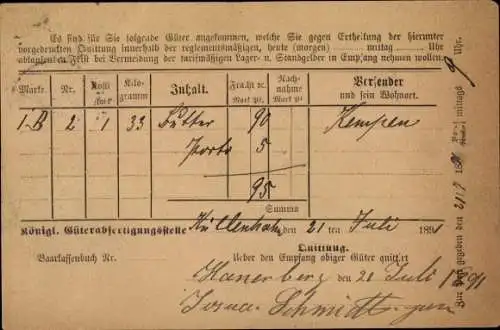 Es sind für Sie folgende Güter angekommen, welche Sie gegen Ertheilung der hierunter
vorgedruckten Quittung innerhalb der reglementsmäßigen, heute (morgen) mittag Uhr
ablaufenden Frist bei Vermeidung der tarifmäßigen Lager- u. Standgelder in Empfang nehmen wollen.
Marke. Nr. Kolli Kilo-gramm Inhalt. Fracht ꝛc. Mark Pf. Nach-nahme Mark Pf. Versender und sein Wohnort.
1-B 2 1 33 Butter 90 Kempen
Porto 5
95
Summa
Königl. Güterabfertigungsstelle Küllenhahn den 21 ten Juli 1891
Quittung.
Baarkassenbuch Nr. Ueber den Empfang obiger Güter quittirt
den 21 Juli 1891
Josua Schmidt
Zur Post gegeben den 21/7 18 mittags Uhr.